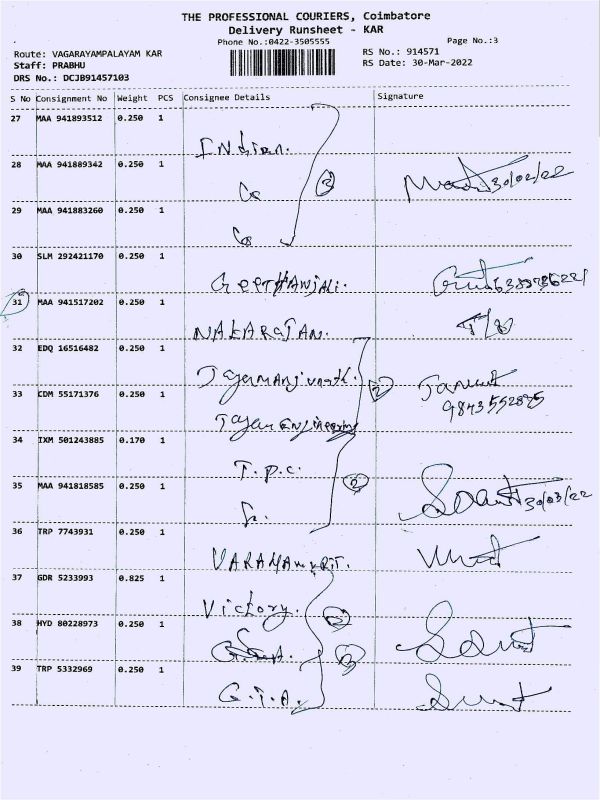 THE PROFESSIONAL COURIERS, Coimbatore
Delivery Runsheet - KAR
Phone No.:0422-3505555
Page No.:3
Route: VAGARAYAMPALAYAM KAR
RS No.: 914571
Staff: PRABHU
RS Date: 30-Mar-2022
DRS No.: DCJB91457103
S No Consignment No Weight PCS Consignee Details Signature
27 MAA 941893512 0.250 1
Indian.
28 MAA 941889342 0.250 1
Co 3 30/02/22
29 MAA 941883260 0.250 1
Co
30 SLM 292421170 0.250 1
GEETHANJALI.
31 MAA 941517202 0.250 1
NAKARAJAN.
32 EDQ 16516482 0.250 1
2
33 CDM 55171376 0.250 1
9843552895
Tajam Engineering
34 IXM 501243885 0.170 1
T.P.C.
35 MAA 941818585 0.250 1
2 30/03/22
36 TRP 7743931 0.250 1
37 GDR 5233993 0.825 1
Victory.
38 HYD 80228973 0.250 1
39 TRP 5332969 0.250 1
G.T.A.